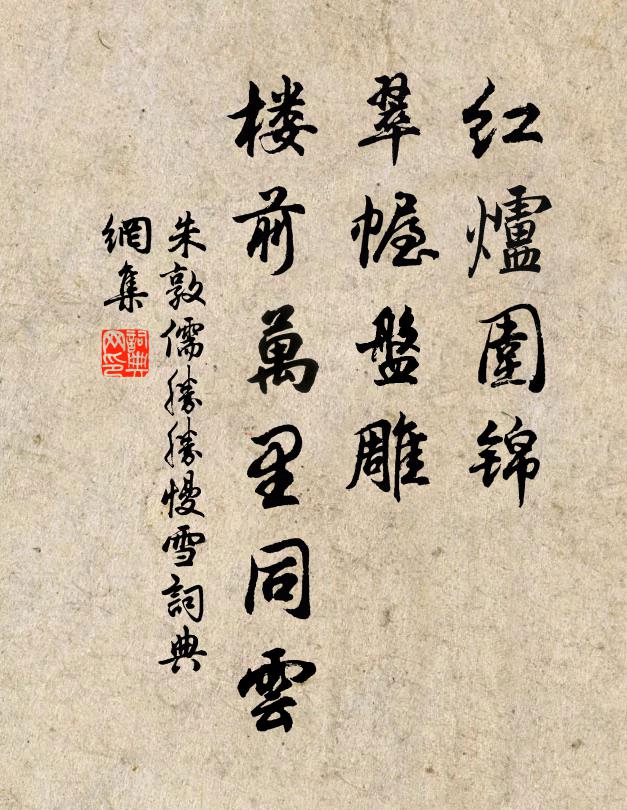 红爐圍锦
翠幄盤雕
楼前萬里同雲
朱敦儒勝勝慢雪詞典
網集
詞典网印